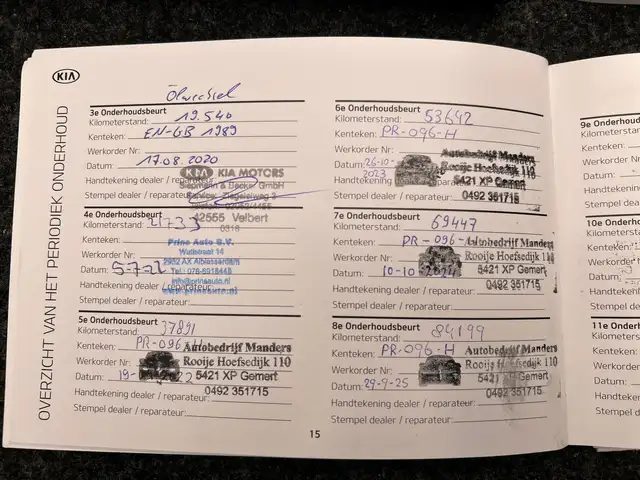 KIA
OVERZICHT VAN HET PERIODIEK ONDERHOUD
Ölwechsel
3e Onderhoudsbeurt
Kilometerstand: 19.540
Kenteken: EN-GB 1989
Werkorder Nr:
Datum: 17.08.2020
Handtekening dealer / reparateur:
Stempel dealer / reparateur:
KIA KIA MOTORS
Siepmann & Becker GmbH
42555 Velbert
4e Onderhoudsbeurt
Kilometerstand:
Kenteken:
Werkorder Nr:
Datum: 5-7-21
Handtekening dealer / reparateur:
Stempel dealer / reparateur:
Prins Auto B.V.
2952 AX Alblasserdam
Tel.: 078-6918448
info@prinsauto.nl
www.prinsauto.nl
5e Onderhoudsbeurt
Kilometerstand: 37891
Kenteken: PR-096
Werkorder Nr:
Datum: 19-
Handtekening dealer / reparateur:
Stempel dealer / reparateur:
Autobedrijf Manders
Rooije Hoefsedijk 110
5421 XP Gemert
0492 351715
6e Onderhoudsbeurt
Kilometerstand: 53642
Kenteken: PR-096-H
Werkorder Nr:
Datum: 26-10-2023
Handtekening dealer
Stempel dealer / reparateur:
Autobedrijf Manders
Rooije Hoefsedijk 110
5421 XP Gemert
0492 351715
7e Onderhoudsbeurt
Kilometerstand: 69447
Kenteken: PR-096-
Werkorder Nr:
Datum: 10-10-2024
Handtekening dealer / reparateur:
Stempel dealer / reparateur:
Autobedrijf Manders
Rooije Hoefsedijk 110
5421 XP Gemert
0492 351715
8e Onderhoudsbeurt
Kilometerstand: 84199
Kenteken: PR-096-H
Werkorder Nr:
Datum: 29-9-25
Handtekening dealer / reparateur:
Stempel dealer / reparateur:
Autobedrijf Manders
Rooije Hoefsedijk 110
5421 XP Gemert
0492 351715
15
9e Onderho
Kilometerstan
Kenteken:
Werkorder N
Datum:
Handtekenin
Stempel dea
10e Onder
Kilometers
Kenteken:
Werkorder
Datum:
Handteken
Stempel d
11e Onder
Kilometer
Kenteken
Werkorde
Datum:
Handtek
Stempel